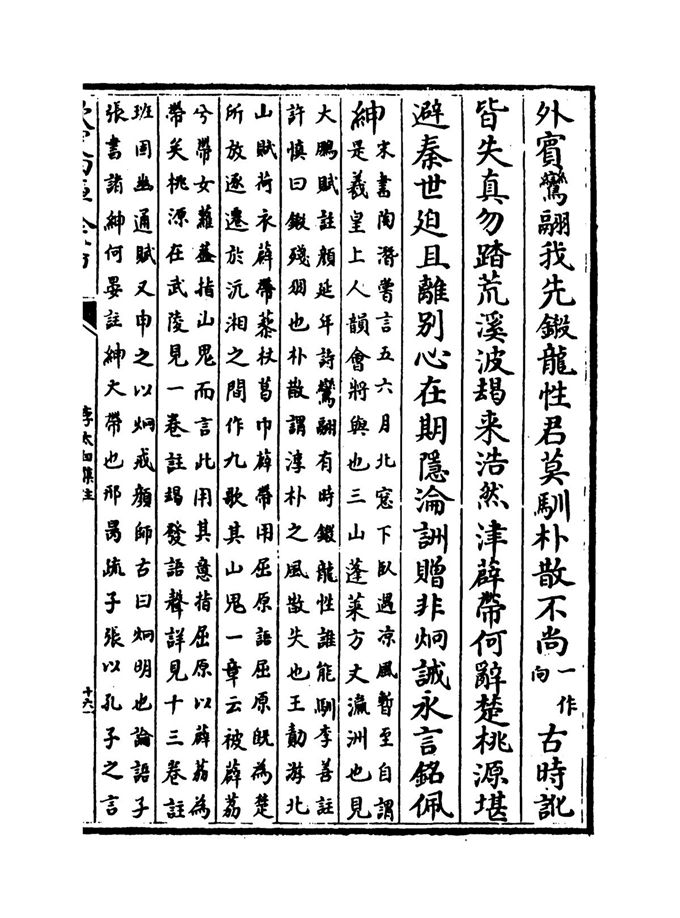 外賓鸞翮我先鎩龍性君莫馴朴散不尚一作向古時訛
皆失真勿踏荒溪波朅来浩然津薜帶何辭楚桃源堪
避秦世廹且離別心在期隱淪詶贈非炯誡永言銘佩
紳
宋書陶潛嘗言五六月北窓下臥遇凉風暫至自謂
是羲皇上人韻會將與也三山蓬萊方丈瀛洲也見
大鵬賦註顔延年詩鸞翮有時鎩龍性誰能馴李善註
許慎曰鎩殘羽也朴散謂淳朴之風散失也王勣游北
山賦荷衣薜帶藜杖葛巾薜帶用屈原語屈原既為楚
所放逐遷於沅湘之間作九歌其山鬼一章云被薜荔
兮帶女蘿蓋指山鬼而言此用其意指屈原以薜荔為
帶矣桃源在武陵見一卷註朅發語聲詳見十三卷註
班固幽通賦又申之以炯戒顔師古曰炯明也論語子
張書諸紳何晏註紳大帶也邢昺疏子張以孔子之言
李太白集注